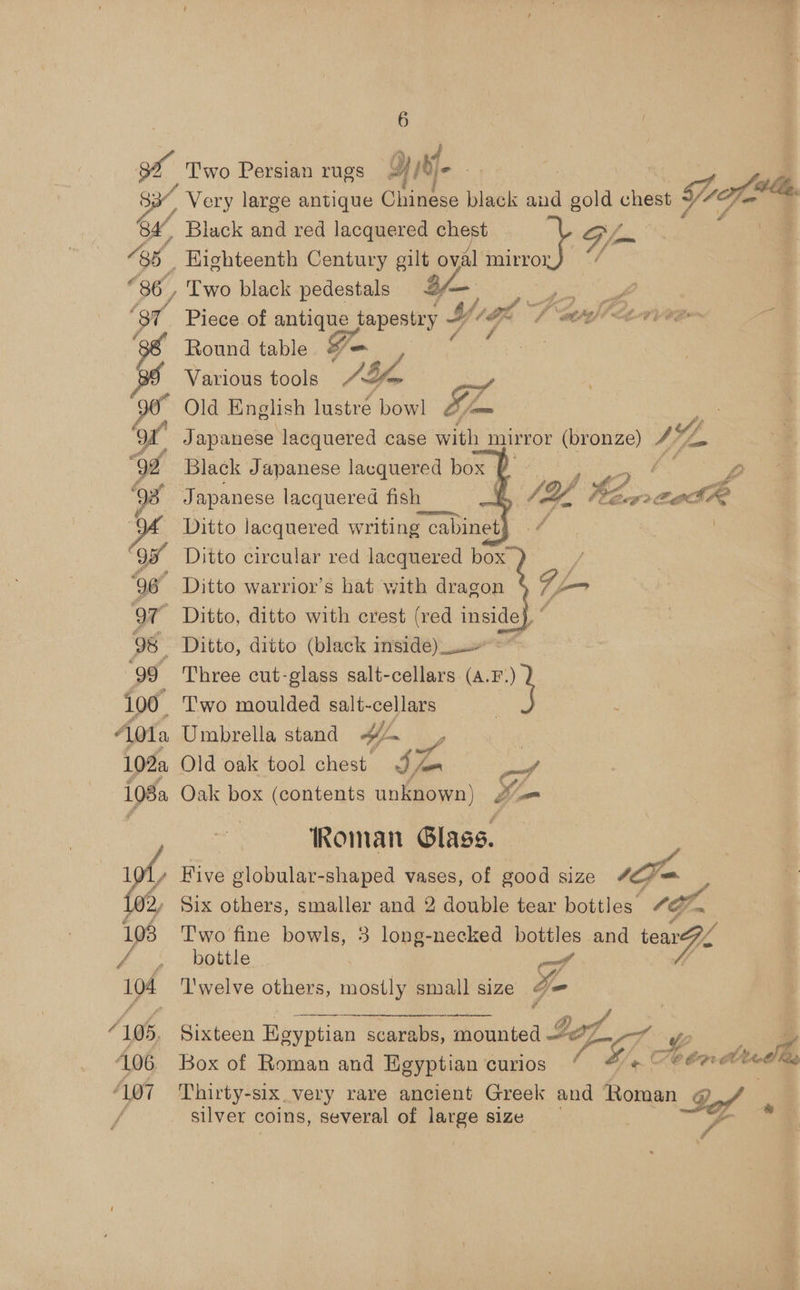 6
82 Two Persian rugs
83 Very large antique Chinese black and gold chest
84 Black and red lacquered chest
85 Eighteenth Century gilt oval mirror
86 Two black pedestals
87 Piece of antique tapestry
88 Round table
89 Various tools
90 Old English lustre bowl
91 Japanese lacquered case with mirror (bronze)
92 Black Japanese lacquered box
93 Japanese lacquered fish
94 Ditto lacquered writing cabinet
95 Ditto circular red lacquered box
96 Ditto warrior's hat with dragon
97 Ditto, ditto with crest (red inside)
98 Ditto, ditto (black inside)
99 Three cut-glass salt-cellars (A.F.)
100 Two moulded salt-cellars
101a Umbrella stand
102a Old oak tool chest
103a Oak box (contents unknown)
Roman Glass.
101 Five globular-shaped vases, of good size
102 Six others, smaller and 2 double tear bottles
103 Two fine bowls, 3 long-necked bottles and tear
bottle
104 Twelve others, mostly small size
105 Sixteen Egyptian scarabs, mounted
106 Box of Roman and Egyptian curios
107 Thirty-six very rare ancient Greek and Roman
silver coins, several of large size